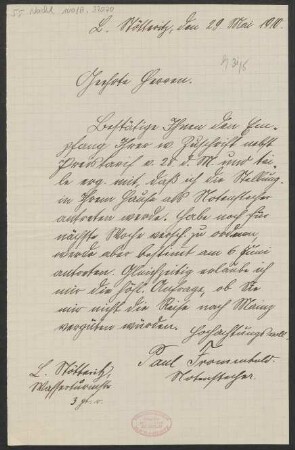 L. Stötteritz, den 29 Mai 1910.
Geehrte Herren.
Bestätige Ihnen den Em-
pfang Ihrer w. Zuschrift nebst
Preistarif v. 28 d. M und tei-
le erg. mit, daß ich die Stellung
in Ihrem Hause als Notenstecher
antreten werde. Habe noch für
nächste Woche versch. zu ordnen,
werde aber bestimt am 6 Juni
antreten. Gleichzeitig erlaube ich
mir die höfl. Anfrage, ob Sie
mir nicht die Reise nach Mainz
vergüten würden.
Hochachtungsvoll
Paul
Notenstecher.
L. Stötteritz,